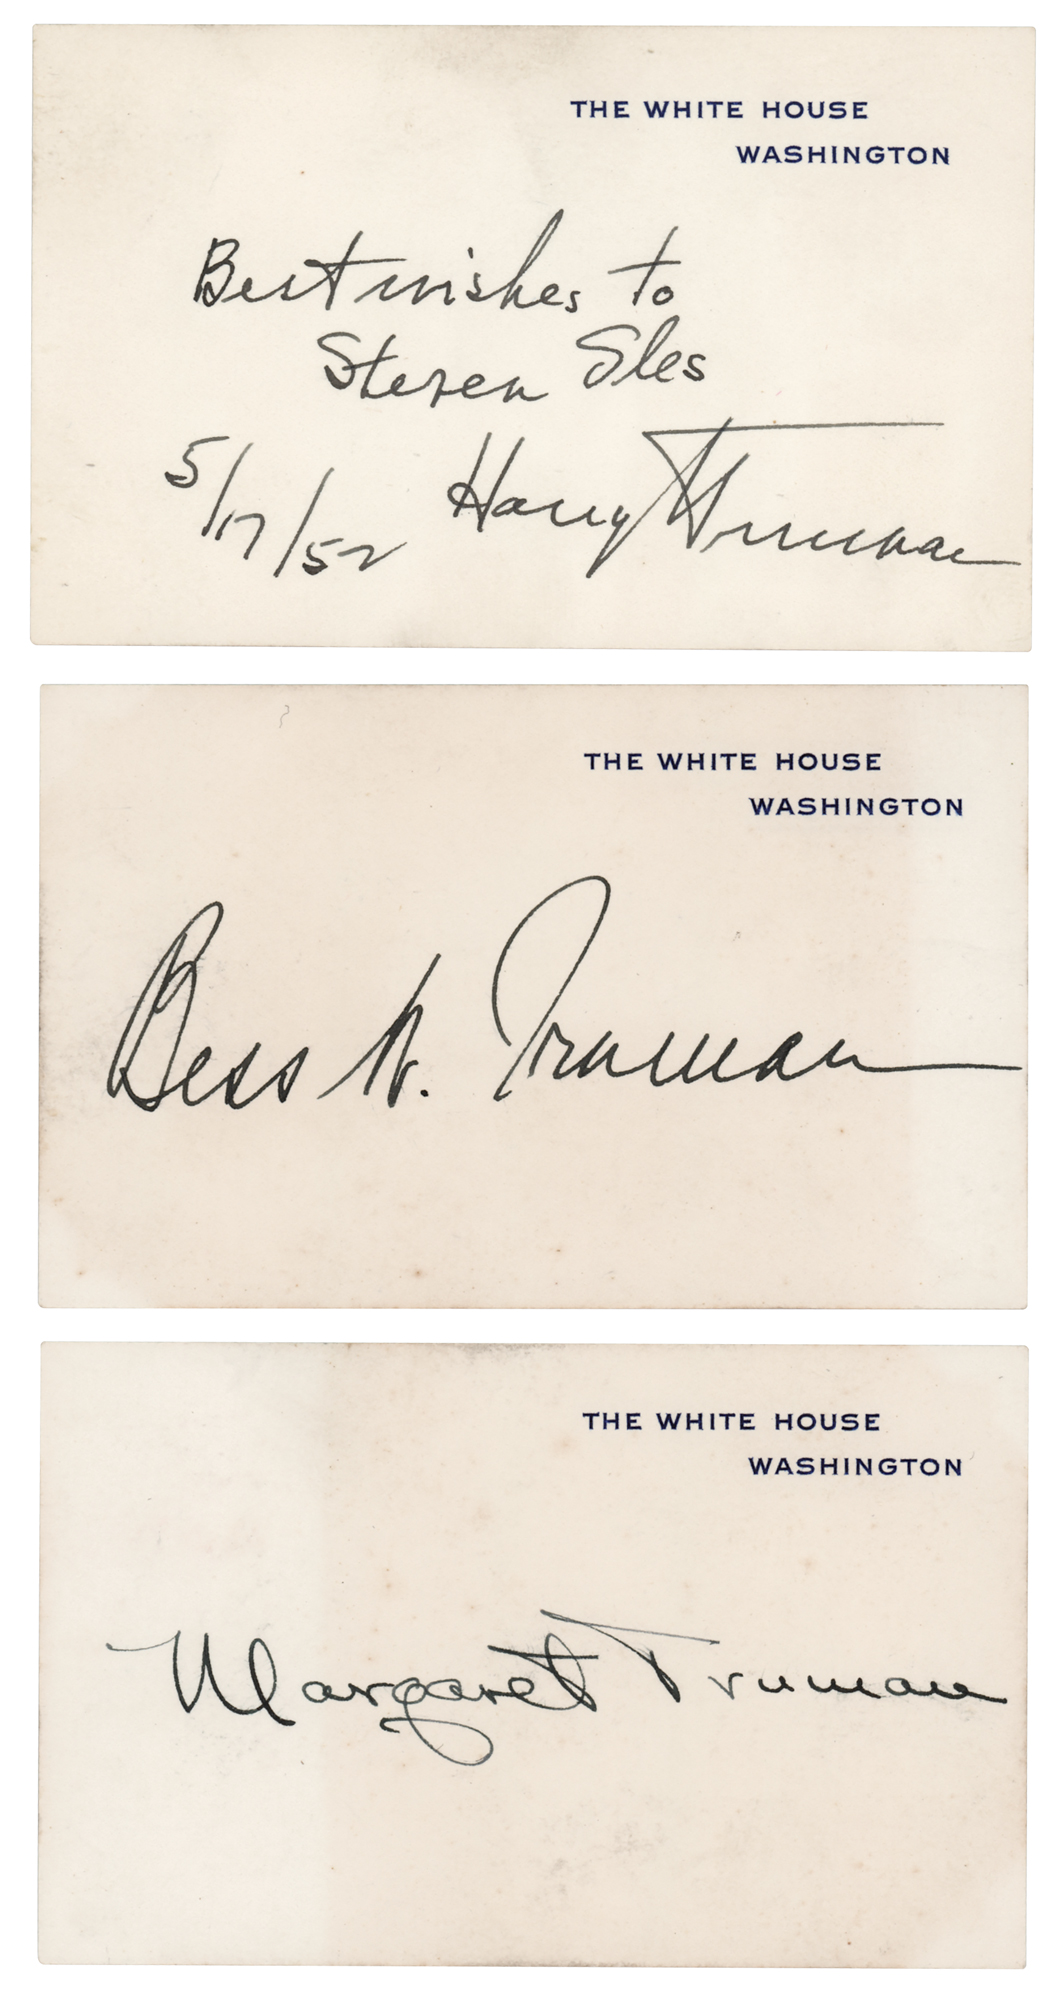 THE WHITE HOUSE
WASHINGTON
Best wishes to
Steven Sles
5/17/52 Harry S Truman
THE WHITE HOUSE
WASHINGTON
Bess W. Truman
THE WHITE HOUSE
WASHINGTON
Margaret Truman